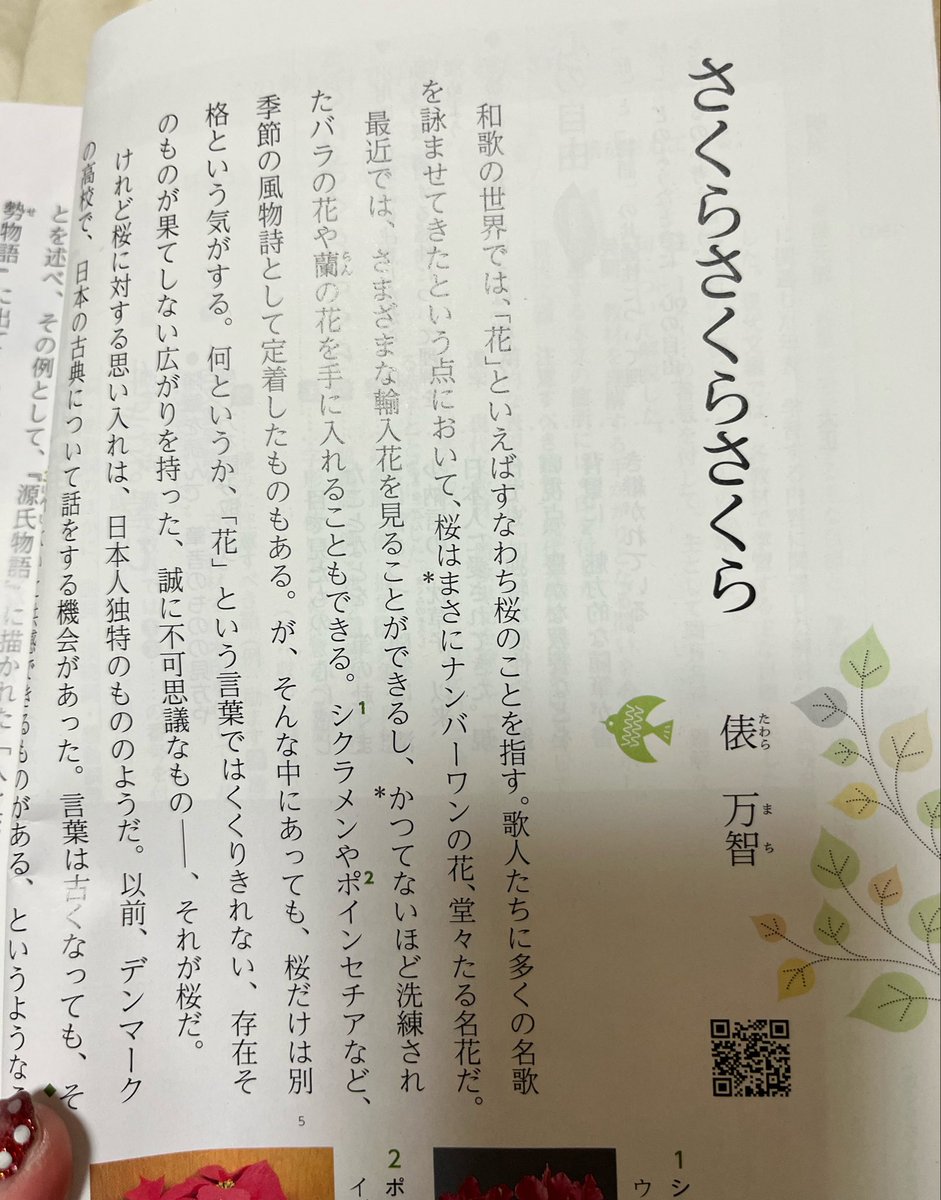 さくらさくらさくら
俵 万智
たわら まち
和歌の世界では、「花」といえばすなわち桜のことを指す。歌人たちに多くの名歌
を詠ませてきたという点において、桜はまさにナンバーワンの花、堂々たる名花だ。
最近では、さまざまな輸入花を見ることができるし、かつてないほど洗練され
たバラの花や蘭の花を手に入れることもできる。シクラメンやポインセチアなど、
らん
季節の風物詩として定着したものもある。が、そんな中にあっても、桜だけは別
格という気がする。何というか、「花」という言葉ではくくりきれない、存在そ
のものが果てしない広がりを持った、誠に不可思議なもの——、それが桜だ。
けれど桜に対する思い入れは、日本人独特のもののようだ。以前、デンマーク
の高校で、日本の古典について話をする機会があった。言葉は古くなっても、そ
ものがある、というような
とを述べ、その例として、『源氏物語』に描かれた
勢物語』に出て
せ
*
*
1
2
5
1 シ
ウ
2 ポ
イ